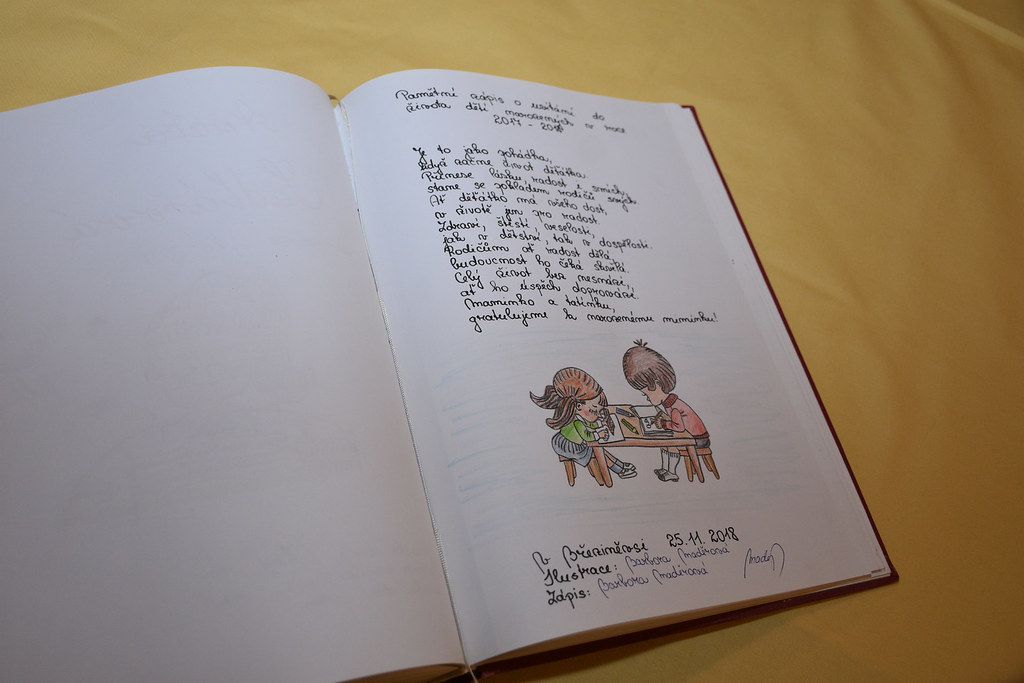 Pamětní zápis o uvítání do
života dětí narozených v roce
2017 - 2018
Je to jako pohádka,
když začne život děťátka.
Přinese lásku, radost i smích,
stane se pokladem rodičů svých.
Ať děťátko má všeho dost,
v životě jen pro radost.
Zdraví, štěstí, veselosti,
jak v dětství, tak v dospělosti.
Rodičům ať radost dělá,
budoucnost ho čeká skvělá.
Celý život bez nesnází,
ať ho úspěch doprovází.
Maminko a tatínku,
gratulujeme k narozenému miminku!
V Březiněvsi 25.11. 2018
Ilustrace: Barbora Maděrová
Zápis: Barbora Maděrová